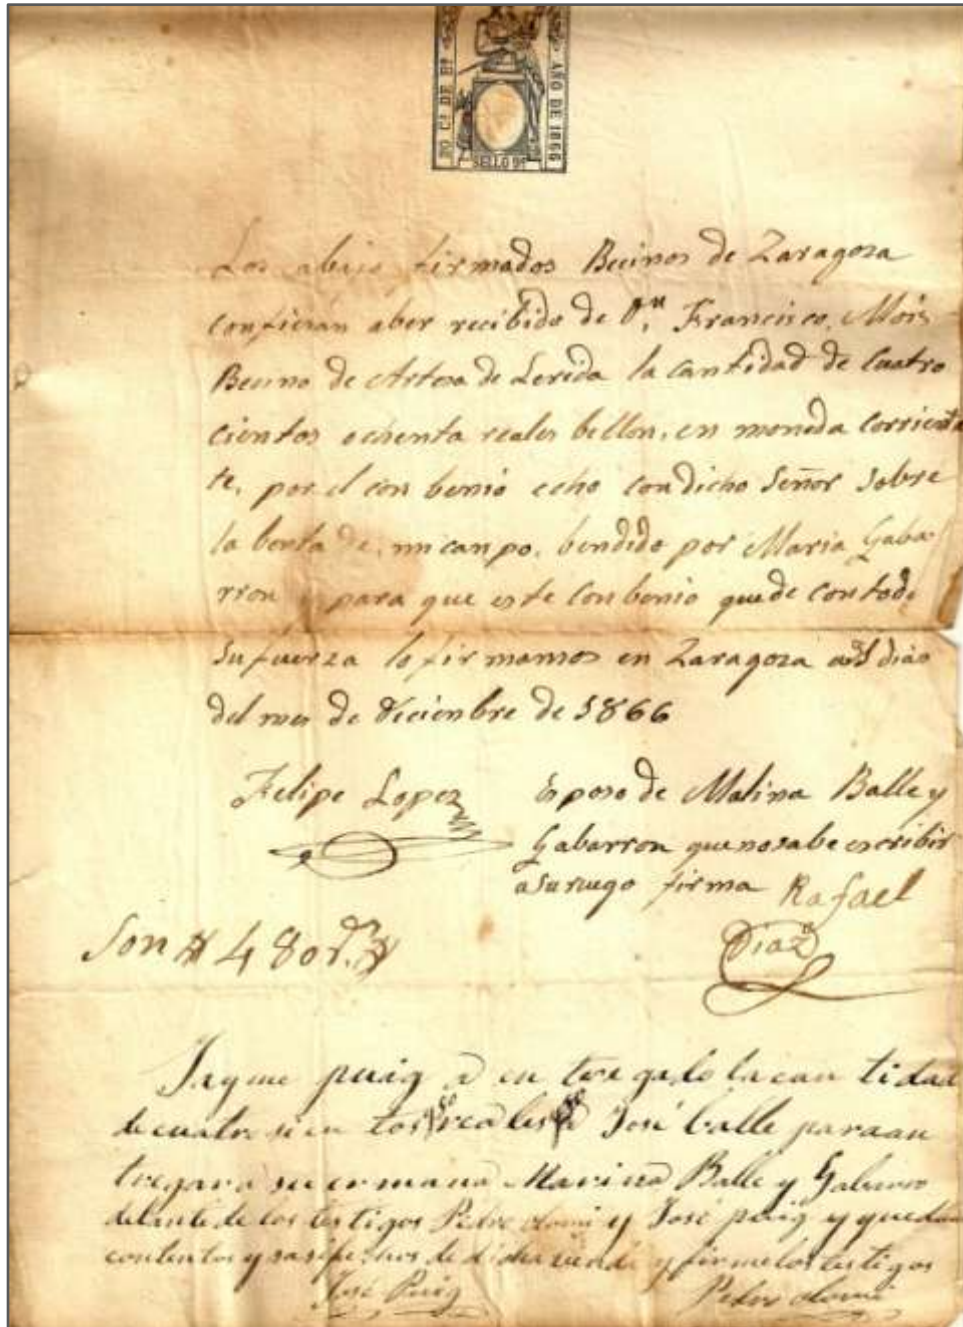 50 Cs DE Eº
AÑO DE 1866
SELLO 9º
Los abajo firmados Becinos de Zaragoza
confiesan aber recibido de Dn. Francisco, Mois
Becino de Artesa de Lerida la cantidad de cuatro
cientos ochenta reales bellon, en moneda corrien
te, por el con benio echo con dicho Señor Sobre
la benta de, un canpo, bendido por Maria Gaba-
rron y para que este Conbenio quede con toda
su fuerza lo firmamos en Zaragoza dias
del mes de Decienbre de 1866
Felipe Lopez
Esposo de Malina Balle y
Gabarron que no sabe escribir
a su ruego firma Rafael
Diaz
Son 480 r.
Jayme puig a en tre gado la can tidad
de cuatro si en tos 80 reales a José balle para an
tregar a su ermana Marina Balle y Gabarro
delante de los testigos Pedro y José puig y quedan
contentos y de dicha venda y firme los testigos
José Puig
Pedro